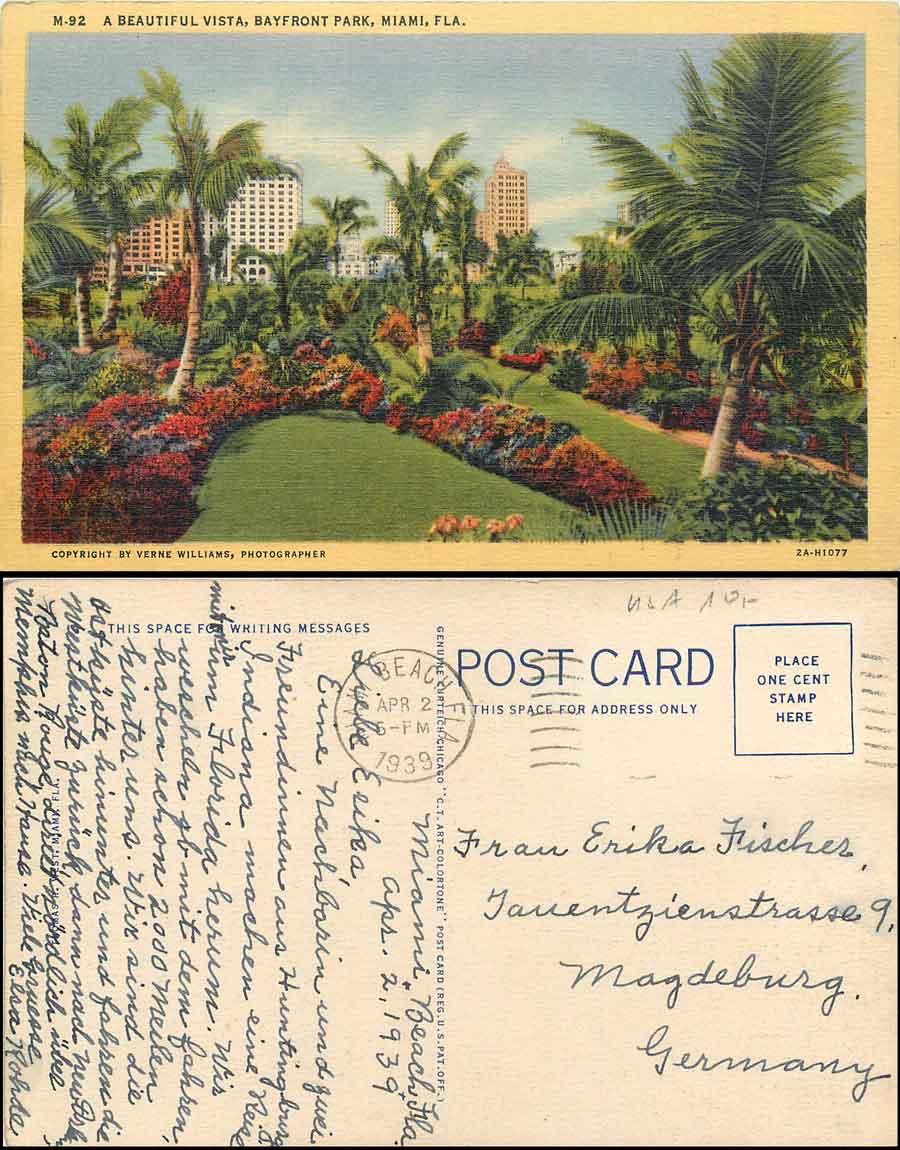 M-92 A BEAUTIFUL VISTA, BAYFRONT PARK, MIAMI, FLA.
COPYRIGHT BY VERNE WILLIAMS, PHOTOGRAPHER
2A-H1077
USA
THIS SPACE FOR WRITING MESSAGES
GENUINE CURTEICH-CHICAGO "C.T. ART-COLORTONE" POST CARD (REG. U.S. PAT. OFF.)
POST CARD
THIS SPACE FOR ADDRESS ONLY
PLACE
ONE CENT
STAMP
HERE
BEACH FLA
APR 2
5-PM
1939
Miami Beach, Fla.
Apr. 2, 1939
Liebe Erika,
Eine Nachbarin und zwei
Freundinnen aus Huntingburg
Indiana machen eine Reise
mit mir
um Florida herum. Wir
wechseln ab mit dem fahren,
haben schon 2000 Meilen
hinter uns. Wir sind die
Ostküste hinunter und fahren die
Westküste zurück dann nach New
Baton Rouge und nördlich über
Memphis nach Hause. Viele Gruesse
Elsa Rohde
MIAMI, FLA.
Frau Erika Fischer,
Tauentzienstrasse 9,
Magdeburg.
Germany